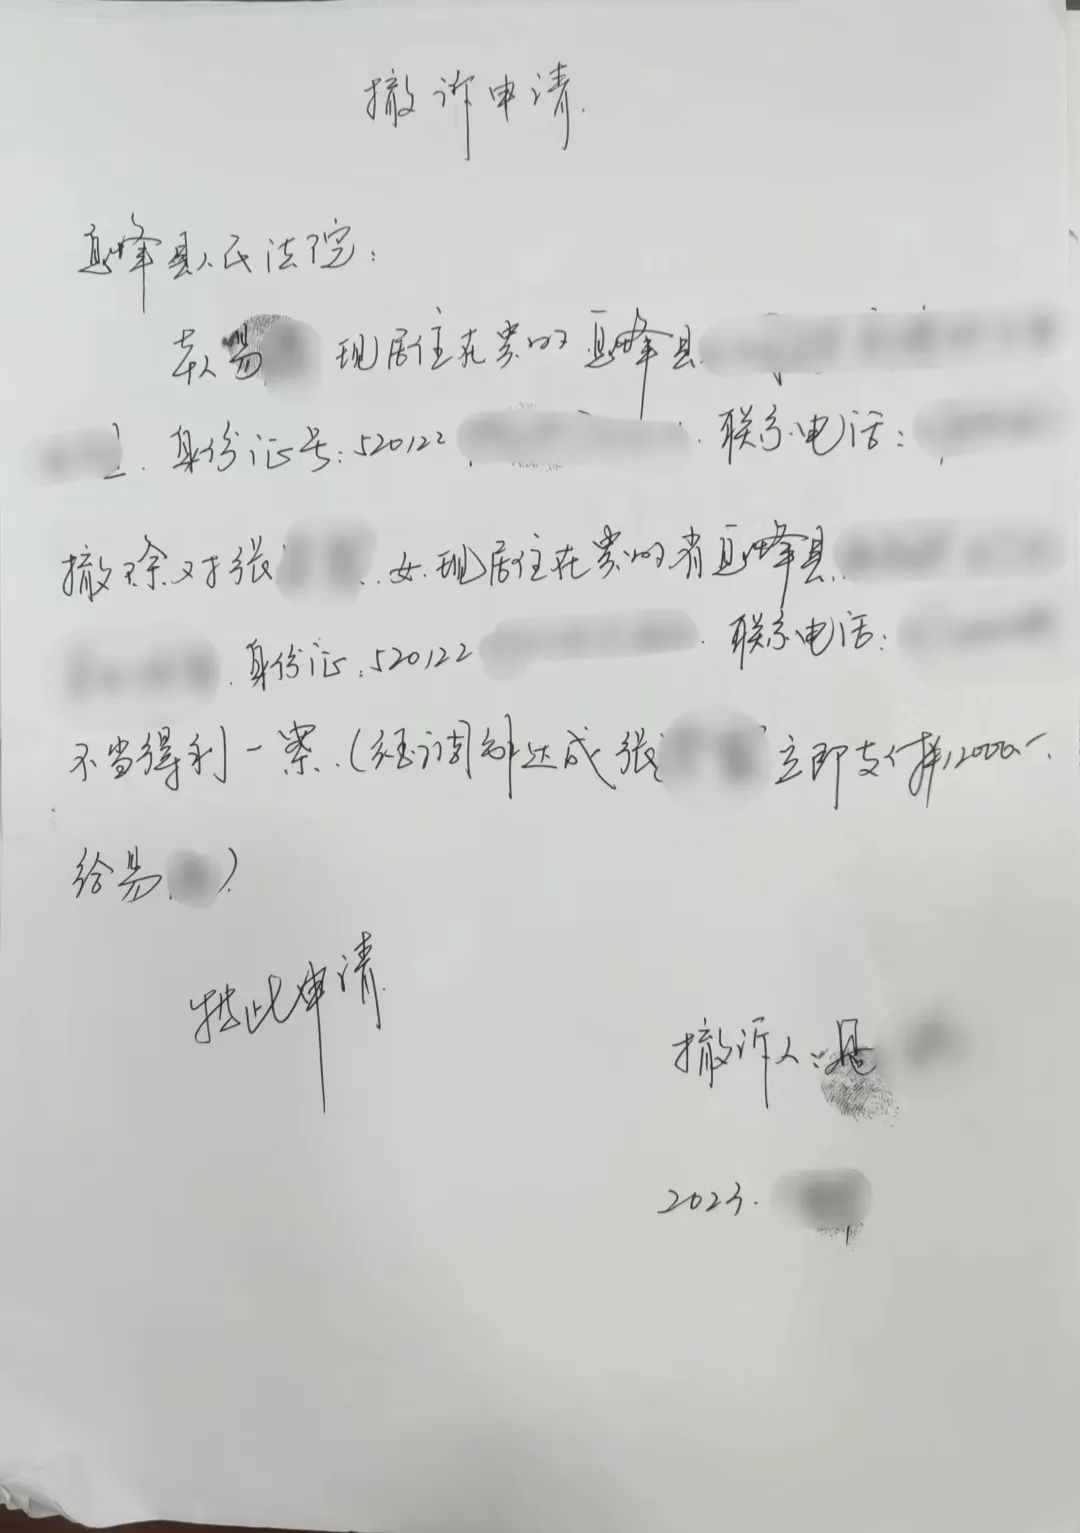 撤诉申请.
息烽县人民法院:
本人易 现居住在贵州 息烽县
身份证号:520122 . 联系电话:
撤除对张 女.现居住在贵州省息烽县
. 身份证:520122 . 联系电话:
不当得利一案.(经调解达成张 立即支付 12000.
给易 )
特此申请
撤诉人:易
2023.